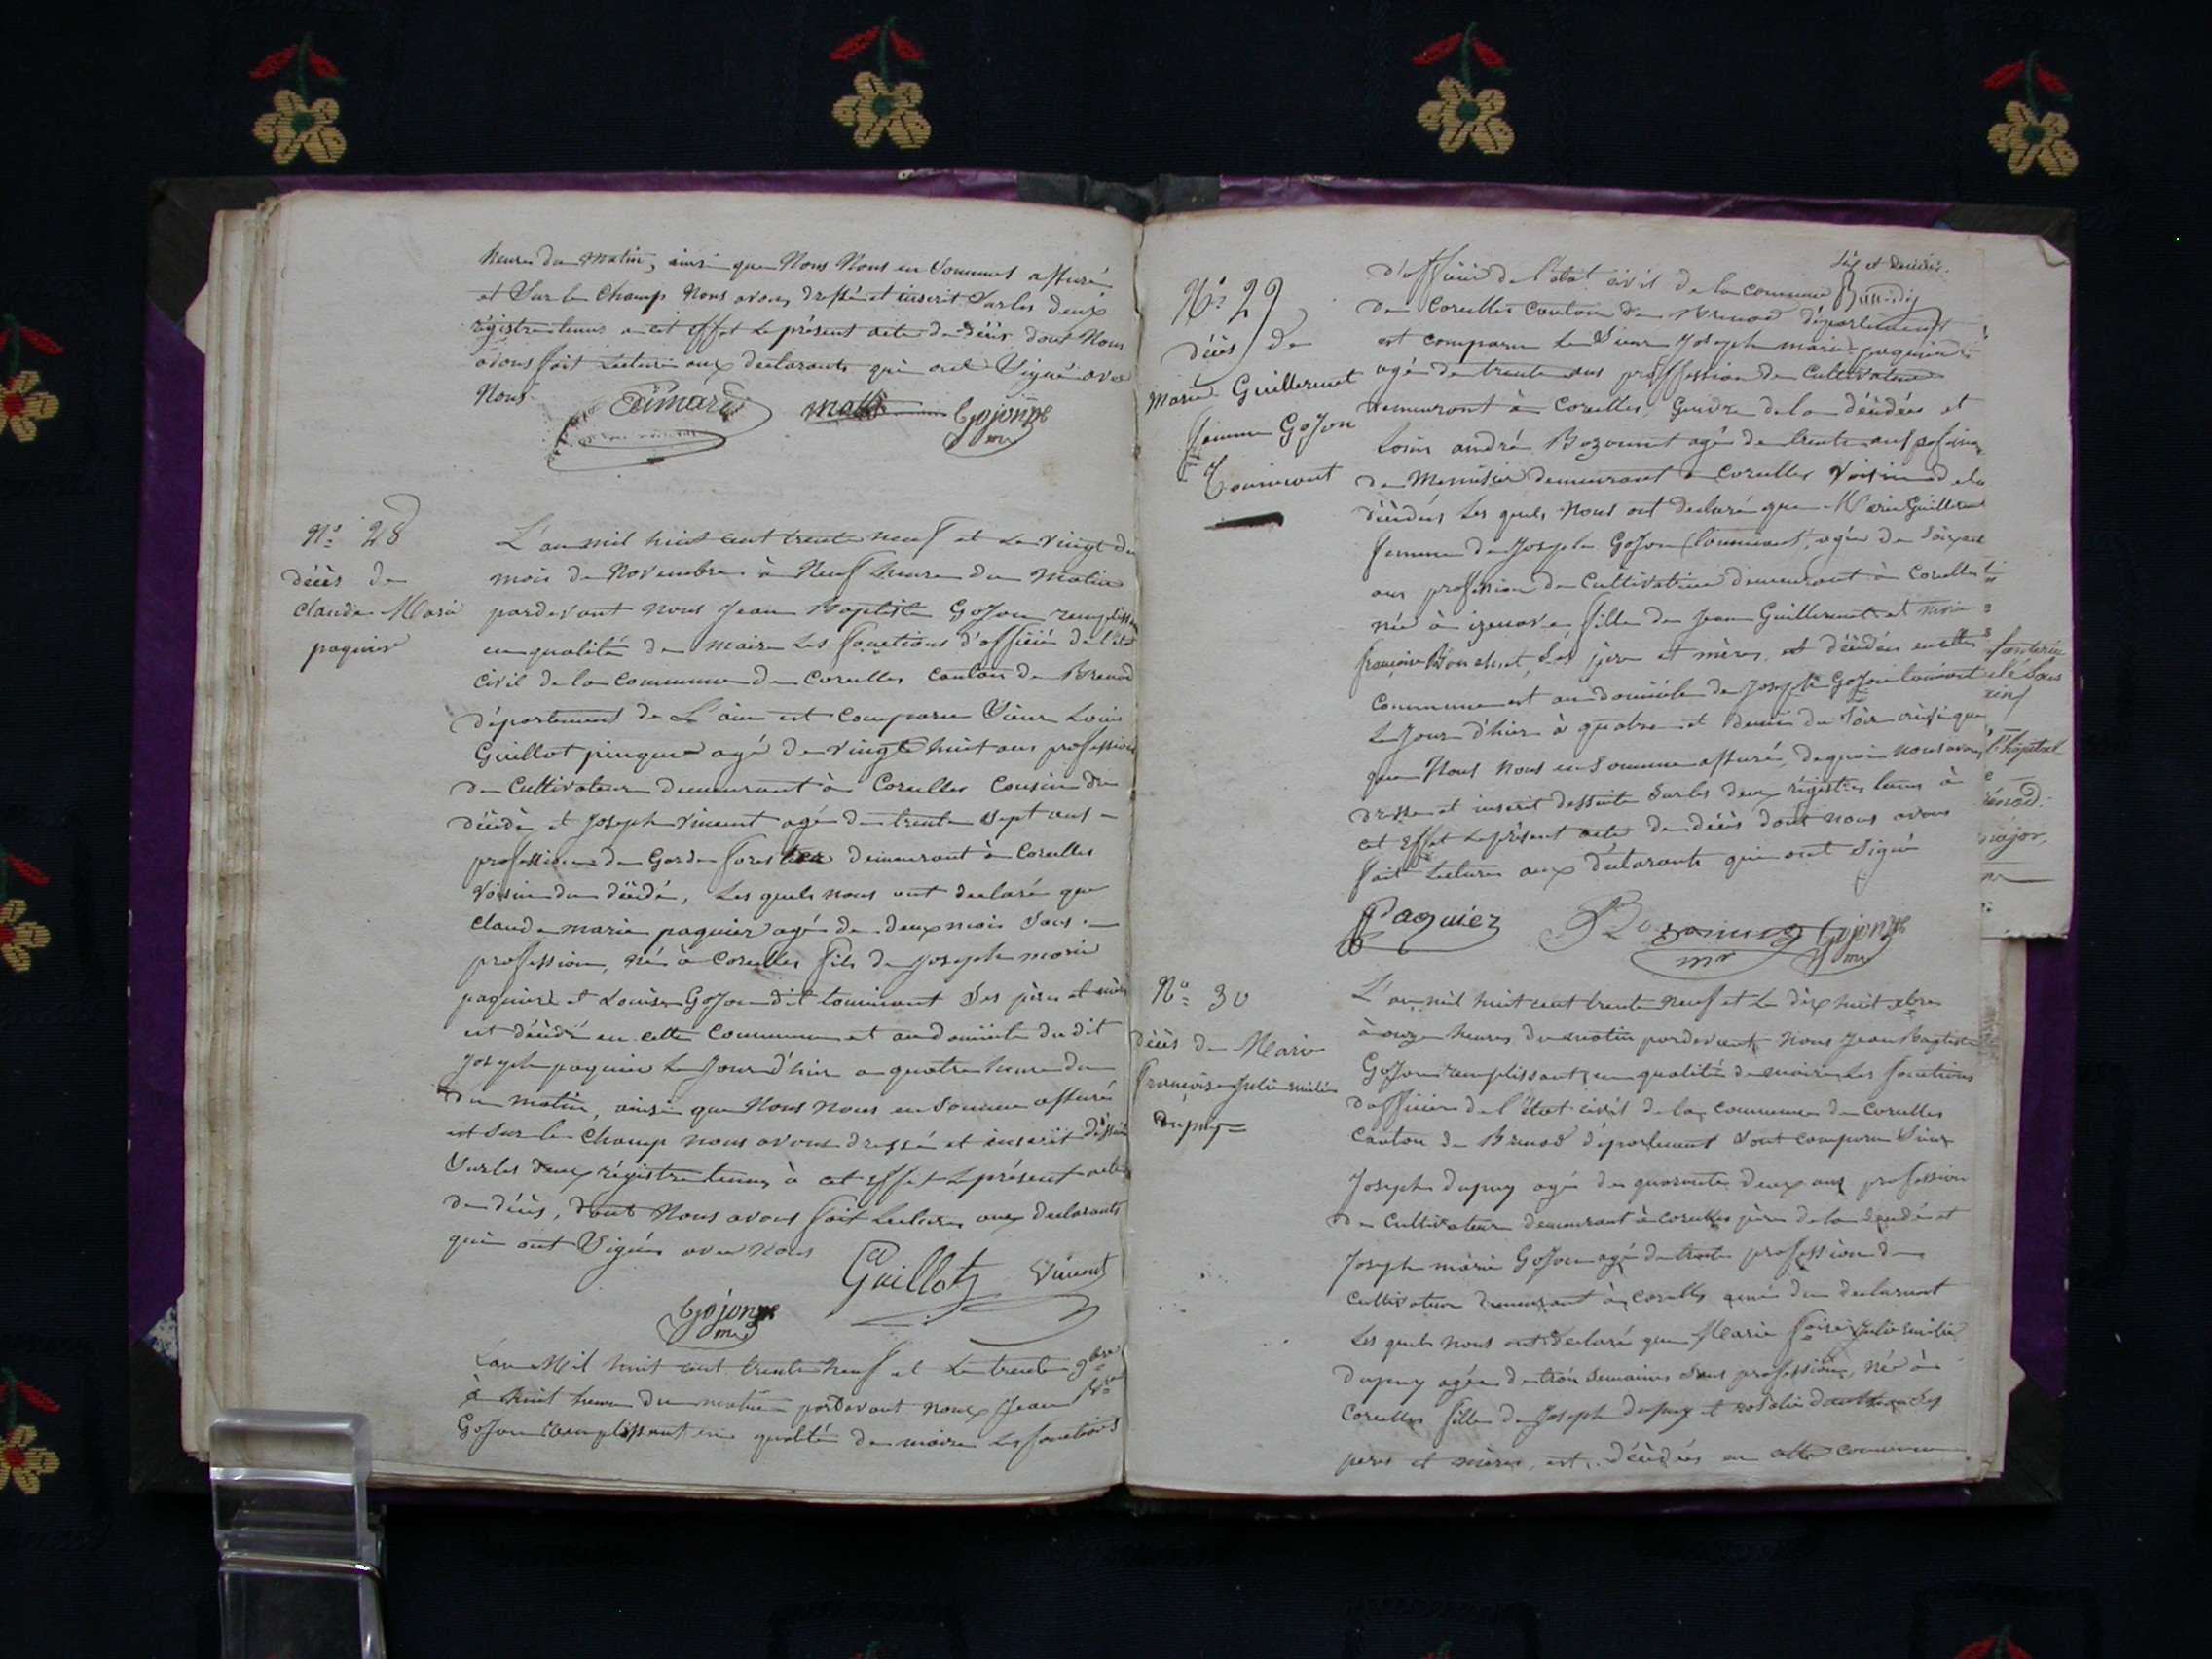 heures du matin, ainsi que Nous Nous en Sommes assuré
et Sur le Champ Nous avons dressé et inscrit Sur les deux
régistre tenus a cet effet le présent acte de décès dont Nous
avons fait Lecture aux declarants qui ont Signé avec
Nous
Gojon
N° 28
décès de
Claude Marie
paquier
L'an mil huit cent trente neuf et Le vingt du
mois de Novembre à Neuf heure du Matin
pardevant nous Jean Baptiste Gojon remplissant
en qualité de maire Les fonctions d'officié de l'état
Civil de la Commune de Corcelles Canton de Brenod
département de L'ain est Comparu Sieur Louis
Guillot age de vingt huit ans profession
de Cultivateur demeurant à Corcelles Cousin du
décédé et Joseph Vincent agé de trente Sept ans -
profession de Garde forestier demeurant à Corcelles
Voisin du décédé, Les quels nous ont declaré que
Claude marie paquier agé de deux mois Sans -
profession, né à Corcelles fils de Joseph marie
paquier et Louise Gojon dit tournivant Ses père et mère
est décédé en cette Commune et au domicile du dit
Joseph paquier Le Jour d'hier a quatre heure du
du matin, ainsi que Nous nous en Somme assuré
et Sur le Champ nous avons dressé et inscrit
Sur les deux régistre tenus à cet Effet Le présent acte
de décès, dont Nous avons fait Lecture aux declarants
qui ont Signés avec Nous
Guillot Vincent
Gojon
L'an Mil huit cent trente neuf et Le trente 9bre
à huit heure du matin pardevant nous Jean Bte
Gojon remplissant en qualité de maire Les fonctions
N° 29
décès de
Marie Guillermet
femme Gojon
d'officié de l'état civil de la commune
de Corcelles Canton de Brenod département
est comparu Le Sieur Joseph marie paquier
agé de trente ans proffession de Cultivateur
demeurant à Corcelles, Gendre de la décédée et
Louis andré Bozonnet agé de trente ans
de Menuisier demeurant a Corcelles Voisin de la
décédée Les quels Nous ont declaré que Marie Guillermet
femme de Joseph Gojon agée de
ans profession de Cultivatrice demeurant à Corcelles
née à izenave fille de Jean Guillermet et Marie
françoise Ses père et mère est décédée en cette
Commune et au domicile de Joseph Gojon
Le Jour d'hier à quatre et demie du Soir ainsi que
que Nous Nous en Somme assuré, de quoi nous avons
dressé et inscrit dessuite Sur les deux régistres tenus à
cet Effet Le présent acte de décès dont nous avons
fait Lecture aux déclarants qui ont Signé
Paquiez Gojon
l'hôpital
major
N° 30
décès de Marie
françoise Julie emilie
Dupuy =
L'an mil huit cent trente neuf et Le dix huit xbre
à onze heures du matin pardevant Nous Jean Baptiste
Gojon remplissant en qualité de maire Les fonctions
d'officier de l'état civil de la commune de Corcelles
Canton de Brenod département Sont comparu Sieur
Joseph dupuy agé de quarante deux ans profession
de Cultivateur demeurant à Corcelles père de la décédé et
Joseph marie Gojon agé de trente profession de
Cultivateur demeurant à Corcelles ami du declarant
Les quels nous ont declaré que Marie Julie emilie
Dupuy agée de trois Semaines Sans profession, née à
Corcelles fille de Joseph dupuy et rosalie Ses
peres et mères, est décédées en cette commune